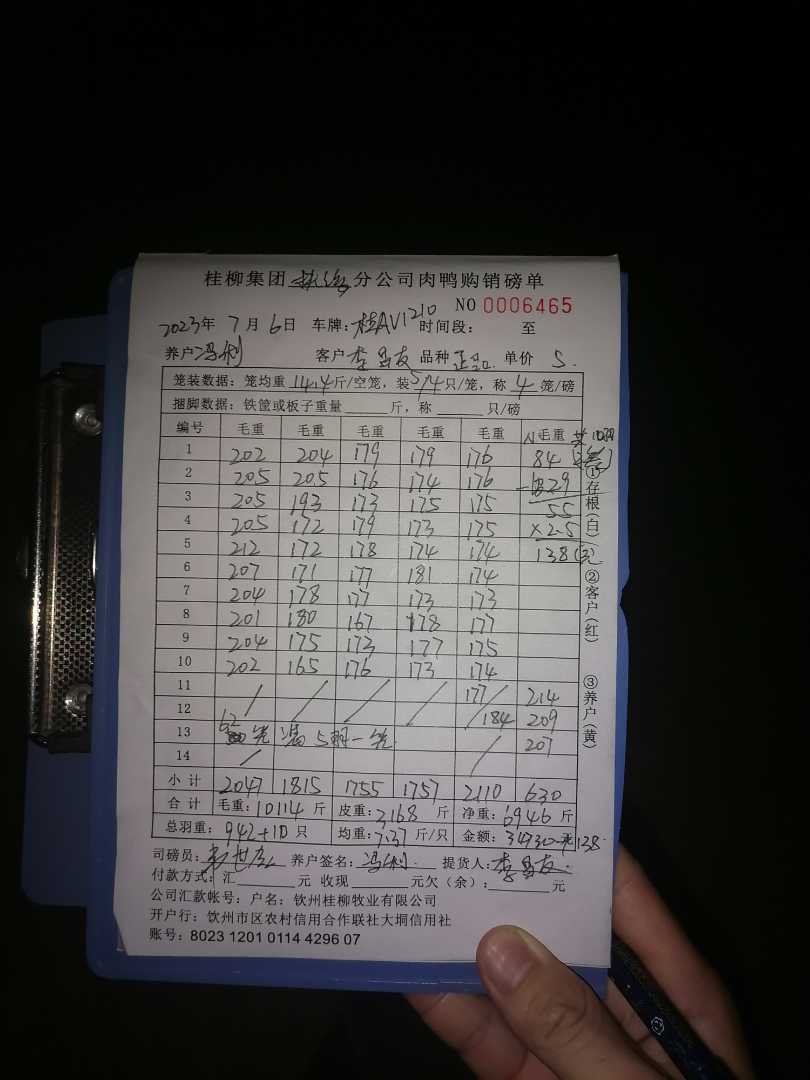 桂柳集团 分公司肉鸭购销磅单
NO 0006465
2023年 7月 6日 车牌：桂AV1210 时间段： 至
养户 冯利 客户 李 友 品种 正品 单价 5.
笼装数据：笼均重 14.4 斤/空笼，装 5/4 只/笼，称 4 笼/磅
捆脚数据：铁筐或板子重量 斤，称 只/磅
编号 毛重 毛重 毛重 毛重 毛重 毛重
1 202 204 179 179 176 84
2 205 205 176 174 176 29
3 205 193 173 175 175 55
4 205 172 179 173 175 ×2.5
5 212 172 178 174 174 138
6 207 171 177 181 174
7 204 178 177 173 173
8 201 180 167 178 177
9 204 175 173 177 175
10 202 165 176 173 174
11 / / / / 177 214
12 / 184 209
13 62 笼 5 一笼 207
14 / /
小计 2047 1815 1755 1757 2110 630
合计 毛重：10114 斤 皮重：3168 斤 净重：6946 斤
总羽重：942+10 只 均重：7.37 斤/只 金额：34730 元 138
司磅员： 养户签名：冯利 提货人：李 友
付款方式：汇 元 收现 元欠（余）： 元
公司汇款帐号：户名：钦州桂柳牧业有限公司
开户行：钦州市区农村信用合作联社大垌信用社
账号：8023 1201 0114 4296 07
①存根（白）
②客户（红）
③养户（黄）